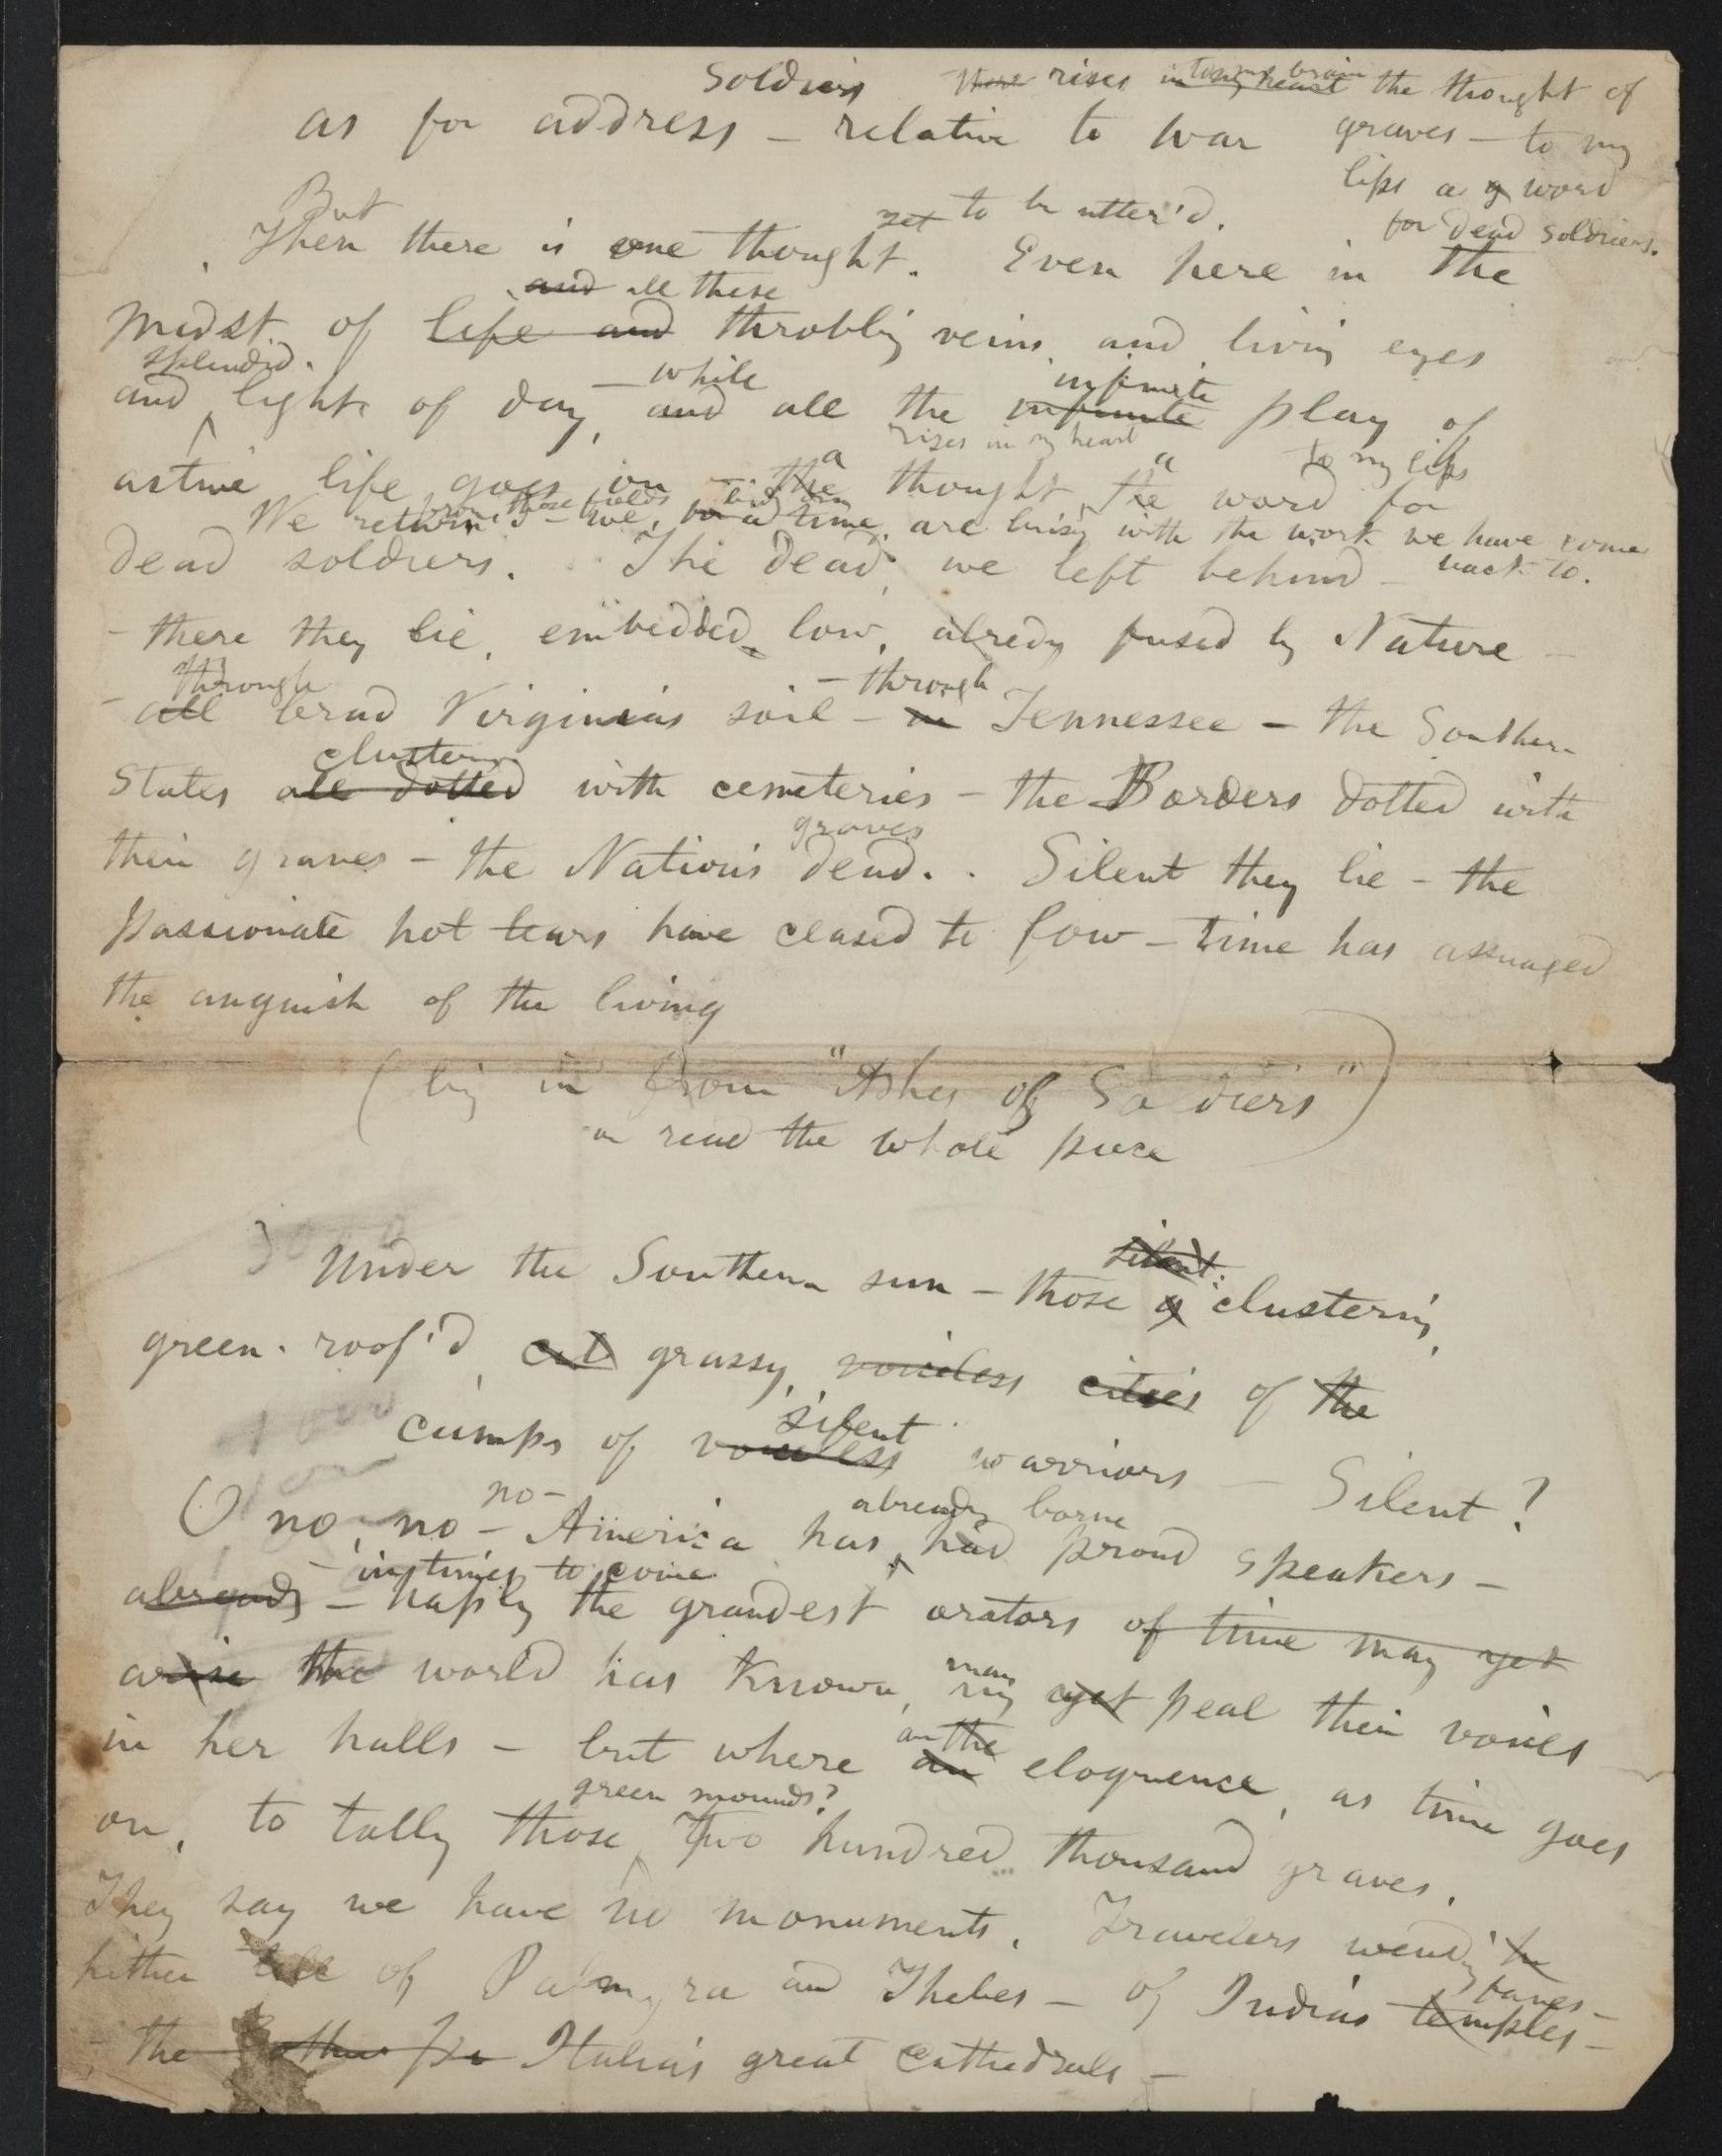 Soldiers there rises in my heart to my brain the thought of
as for address – relative to war graves – to my
lips a g word
But yet to be utter'd. for dead soldiers.
Then there is one thought. Even here in the
and all these
midst of life and throbbing veins and living eyes
splendid. – while infinite
and light of day, and all the infinite play of
rises in my heart to my lips
a a
active life goes on – the thought, the word for
We return'd from those fields – we, are busy with the work we have come
dead soldiers. The dead we left behind – back to.
– there they lie, embedded low, already fused by Nature –
through – through
– all broad Virginia's soil – in Tennessee – the Southern
clustering
States all dotted with cemeteries – the Borders dotted with
graves
their graves – the Nation's dead. . Silent they lie – the
passionate hot tears have ceased to flow – time has assuaged
the anguish of the living
(bring in from "Ashes of Soldiers")
or read the whole piece
silent
Under the Southern sun – those g clustering,
green-roof'd, cit grassy, voiceless cities of the
silent
camps of voiceless warriors – Silent?
no – already borne
O no, no – America has had proud speakers –
– in times to come
already – haply the grandest orators of time may yet
may
arise the world has known, may yet peal their voices
an the
in her halls – but where an eloquence, as time goes
green mounds?
on, to tally those Two hundred thousand graves.
They say we have no monuments. Travelers wending h
fanes –
hither tell of Palmyra and Thebes – of India's temples –
– the other Italia's great Cathedrals –